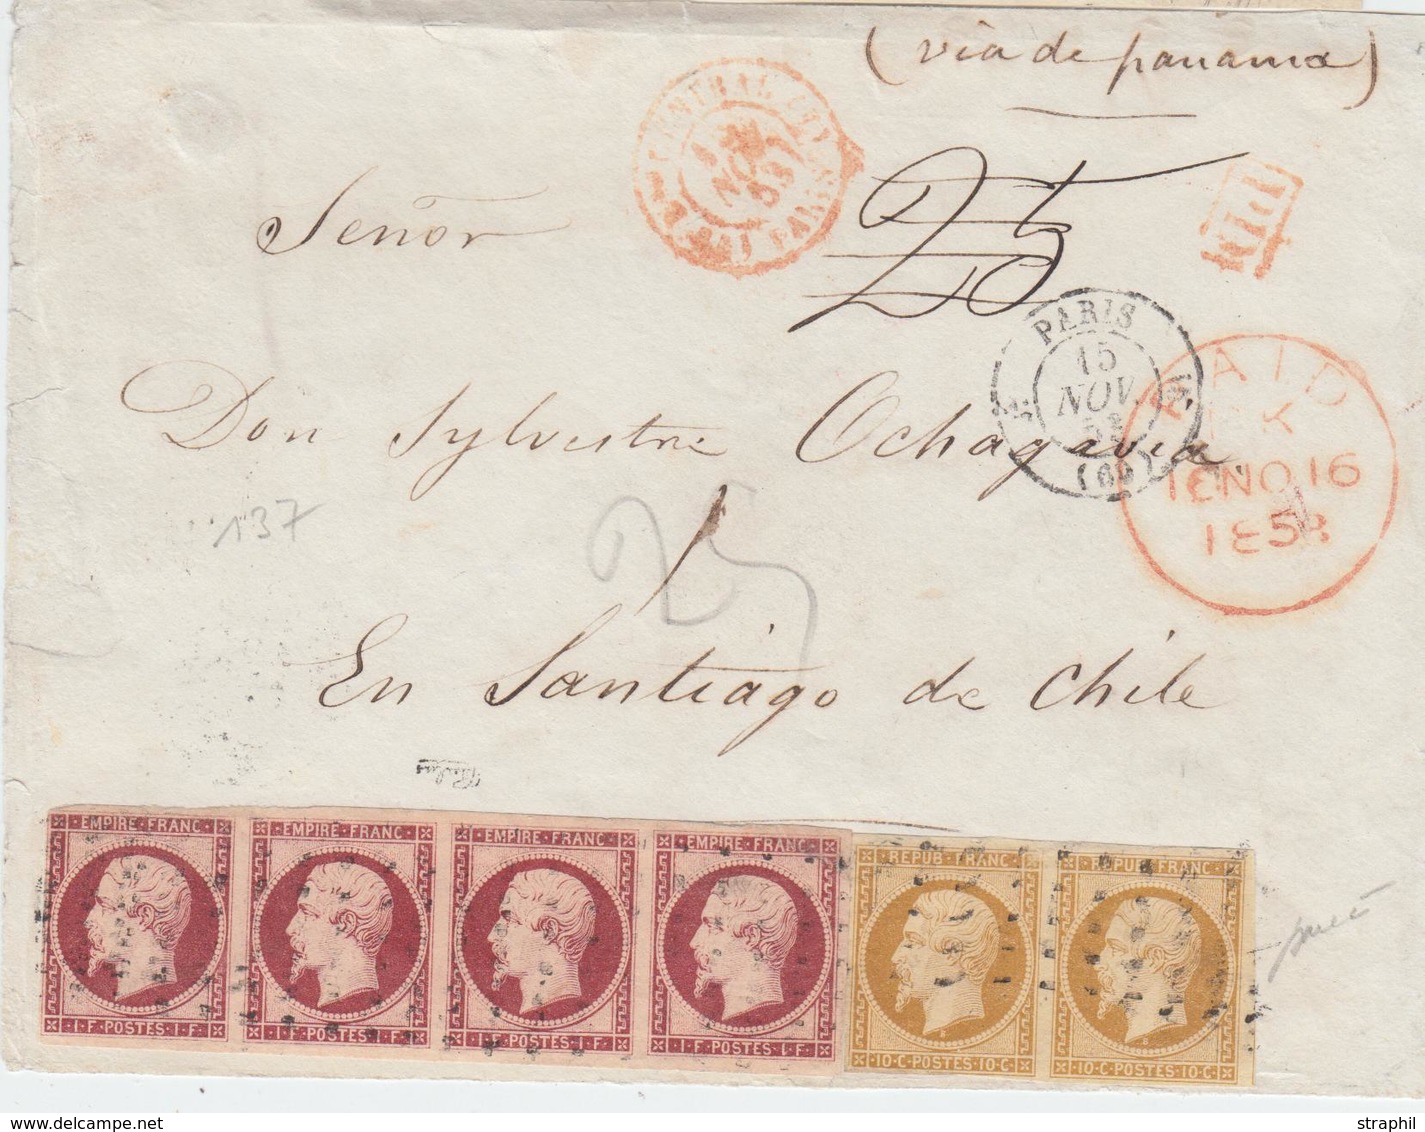 (via de panama)
Señor
25
PD
PARIS
15
NOV.
53
(60)
PAID
16 NO 16
1853
Don Sylvestre Ochagavia
137
25
En Santiago de Chile
EMPIRE · FRANC · EMPIRE · FRANC · EMPIRE · FRANC · EMPIRE · FRANC · REPUB · FRANC · REPUB · FRANC ·
· 1 · F · POSTES · 1 · F · · 1 · F · POSTES · 1 · F · · 1 · F · POSTES · 1 · F · · 1 · F · POSTES · 1 · F · 10 · C · POSTES · 10 · C · 10 · C · POSTES · 10 · C ·
www.delcampe.net
straphil